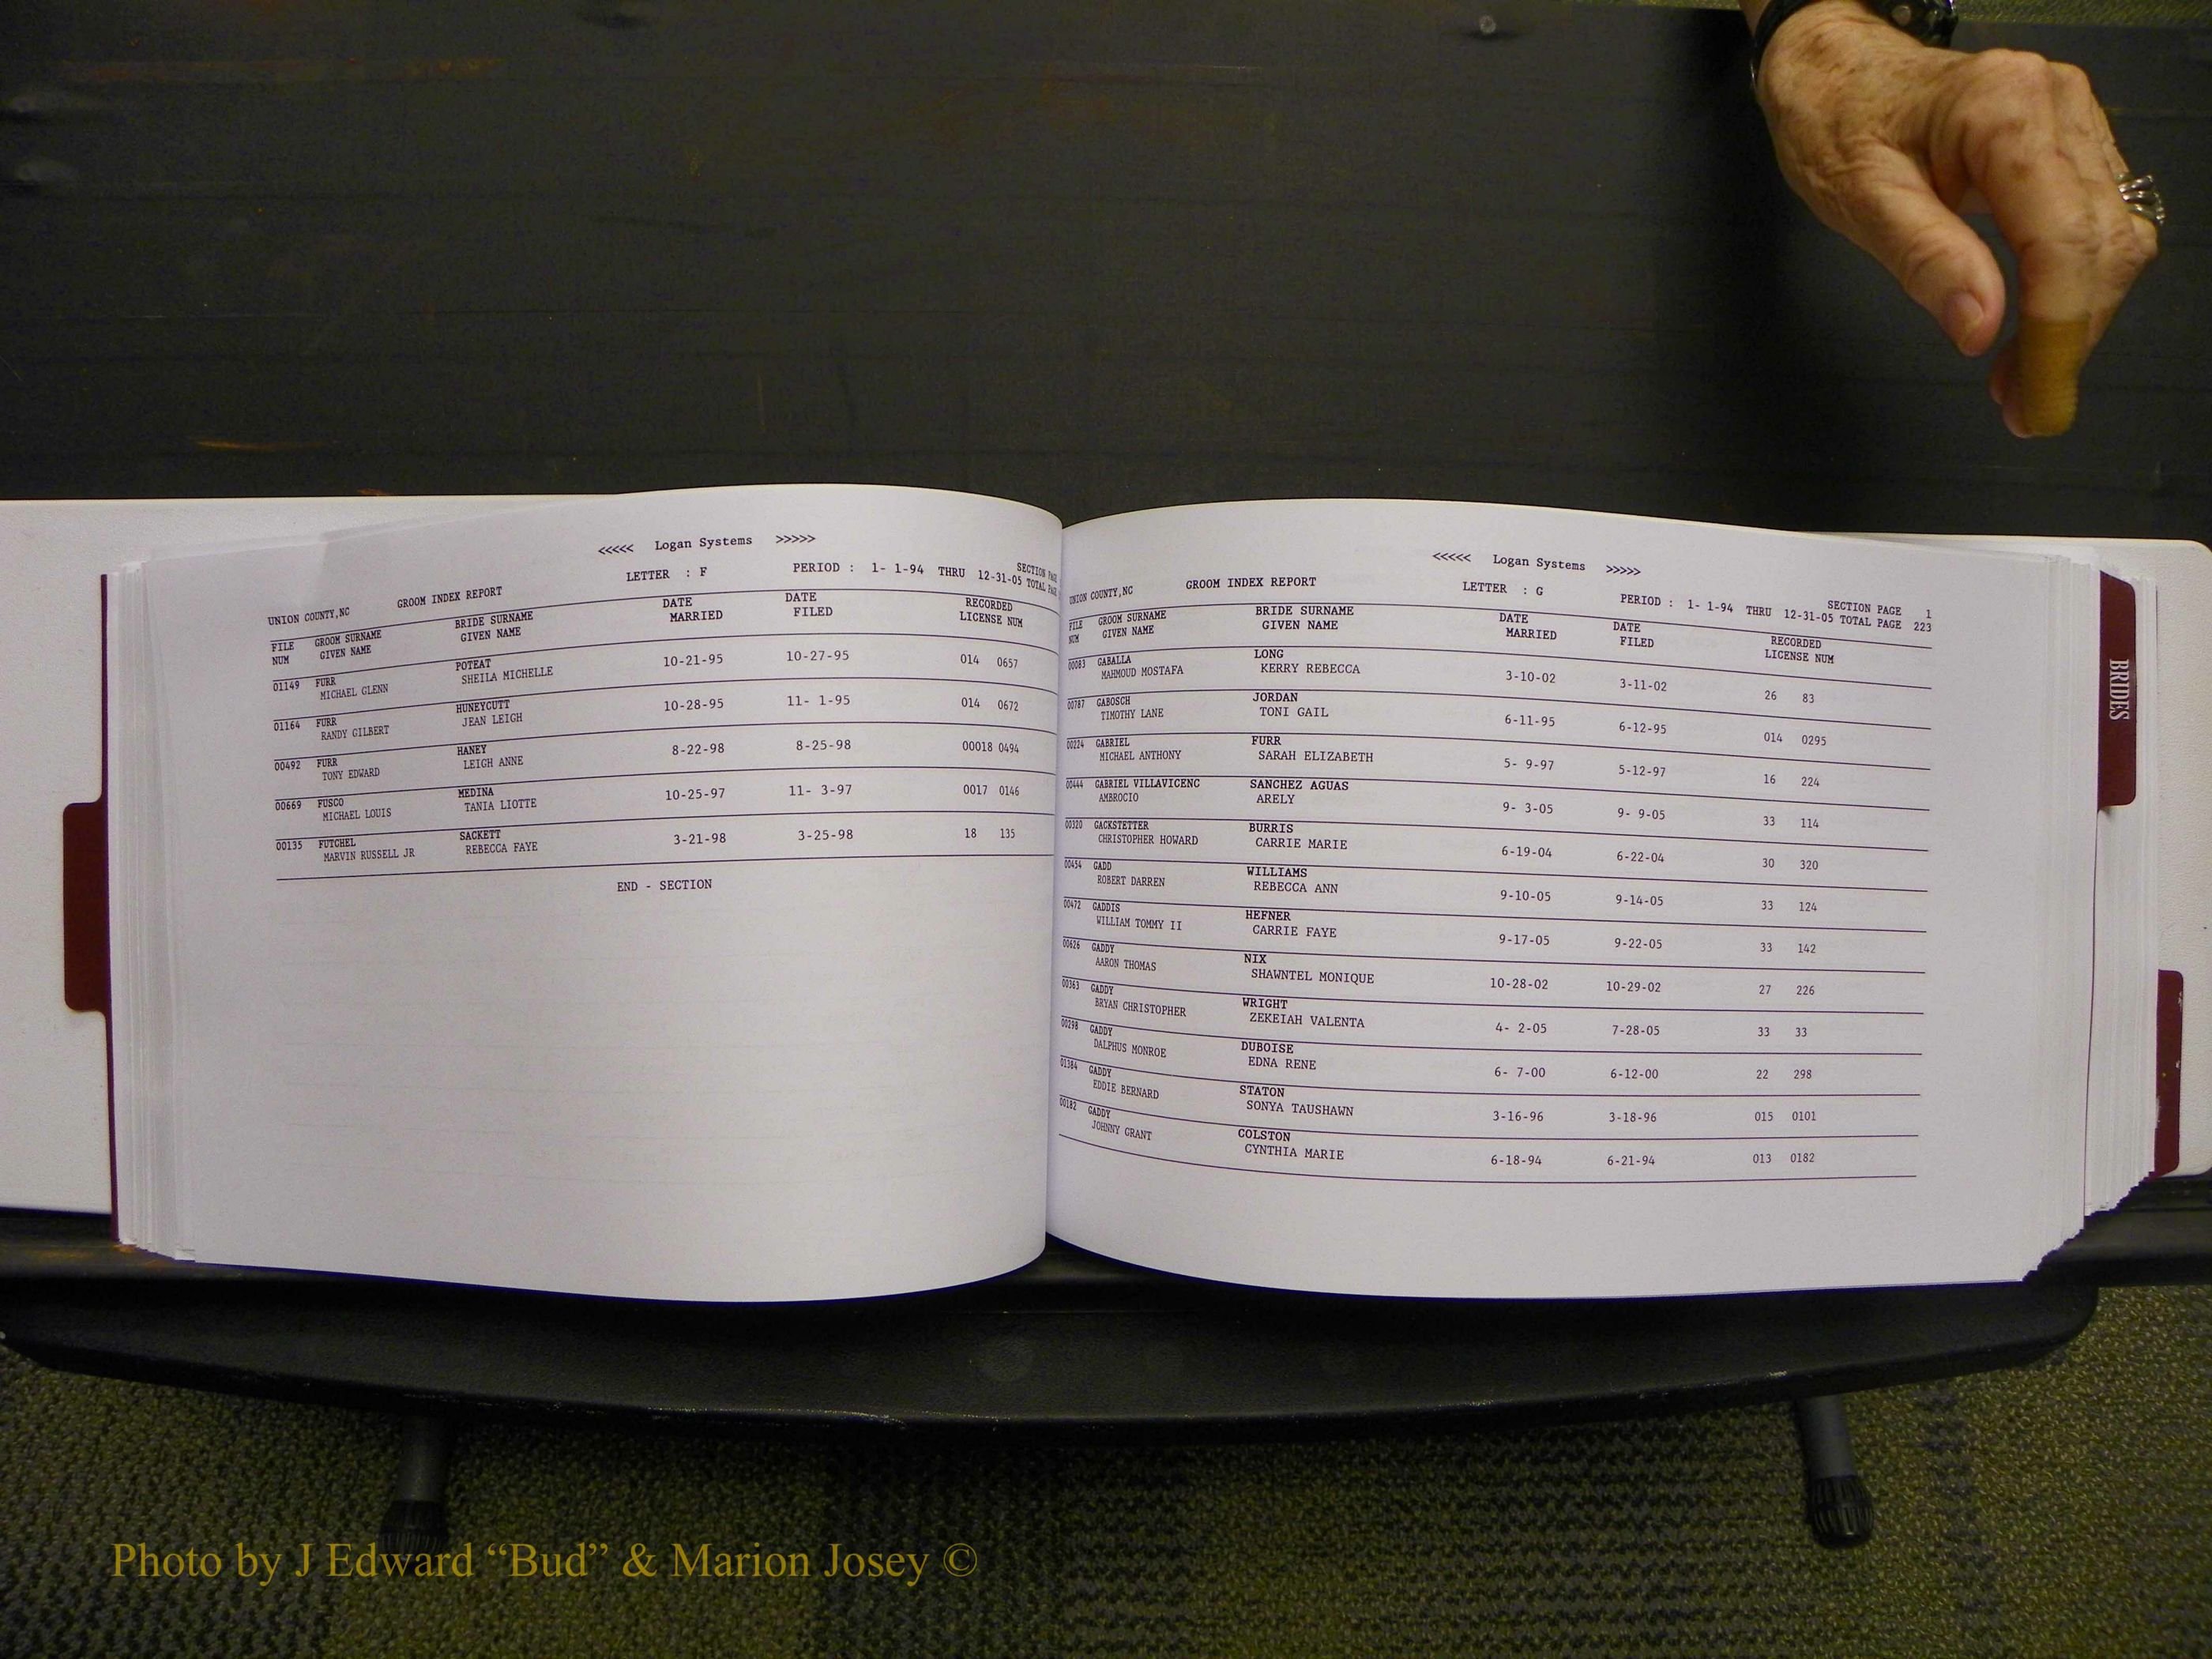 <<<<< Logan Systems >>>>>
UNION COUNTY,NC GROOM INDEX REPORT LETTER : F PERIOD : 1- 1-94 THRU 12-31-05 SECTION
TOTAL
FILE GROOM SURNAME BRIDE SURNAME DATE DATE RECORDED
NUM GIVEN NAME GIVEN NAME MARRIED FILED LICENSE NUM
01149 FURR POTEAT 10-21-95 10-27-95 014 0657
MICHAEL GLENN SHEILA MICHELLE
01164 FURR HUNEYCUTT 10-28-95 11- 1-95 014 0672
RANDY GILBERT JEAN LEIGH
00492 FURR HANEY 8-22-98 8-25-98 00018 0494
TONY EDWARD LEIGH ANNE
00669 FUSCO MEDINA 10-25-97 11- 3-97 0017 0146
MICHAEL LOUIS TANIA LIOTTE
00135 FUTCHEL SACKETT 3-21-98 3-25-98 18 135
MARVIN RUSSELL JR REBECCA FAYE
END - SECTION
<<<<< Logan Systems >>>>>
UNION COUNTY,NC GROOM INDEX REPORT LETTER : G PERIOD : 1- 1-94 THRU 12-31-05 SECTION PAGE 1
TOTAL PAGE 223
FILE GROOM SURNAME BRIDE SURNAME DATE DATE RECORDED
NUM GIVEN NAME GIVEN NAME MARRIED FILED LICENSE NUM
00083 GABALLA LONG 3-10-02 3-11-02 26 83
MAHMOUD MOSTAFA KERRY REBECCA
00787 GABOSCH JORDAN 6-11-95 6-12-95 014 0295
TIMOTHY LANE TONI GAIL
00224 GABRIEL FURR 5- 9-97 5-12-97 16 224
MICHAEL ANTHONY SARAH ELIZABETH
00444 GABRIEL VILLAVICENC SANCHEZ AGUAS 9- 3-05 9- 9-05 33 114
AMBROCIO ARELY
00320 GACKSTETTER BURRIS 6-19-04 6-22-04 30 320
CHRISTOPHER HOWARD CARRIE MARIE
00454 GADD WILLIAMS 9-10-05 9-14-05 33 124
ROBERT DARREN REBECCA ANN
00472 GADDIS HEFNER 9-17-05 9-22-05 33 142
WILLIAM TOMMY II CARRIE FAYE
00626 GADDY NIX 10-28-02 10-29-02 27 226
AARON THOMAS SHAWNTEL MONIQUE
00363 GADDY WRIGHT 4- 2-05 7-28-05 33 33
BRYAN CHRISTOPHER ZEKEIAH VALENTA
00298 GADDY DUBOISE 6- 7-00 6-12-00 22 298
DALPHUS MONROE EDNA RENE
01384 GADDY STATON 3-16-96 3-18-96 015 0101
EDDIE BERNARD SONYA TAUSHAWN
00182 GADDY COLSTON 6-18-94 6-21-94 013 0182
JOHNNY GRANT CYNTHIA MARIE
BRIDES
Photo by J Edward “Bud” & Marion Josey ©